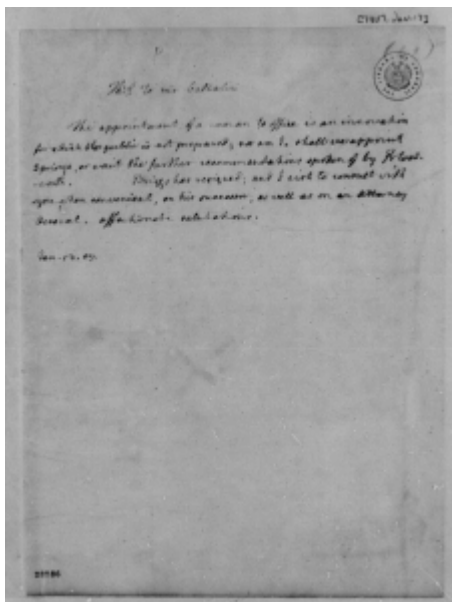 Th:J. to mr Gallatin
The appointment of a woman to office is an innovation
for which the public is not prepared, nor am I. shall we appoint
Springs, or wait the further recommendations spoken of by Blood-
worth. Briggs has resigned; and I wish to consult with
you when convenient, on his successor, as well as on an Attorney
General. affectionate salutations.
Jan. 13. 07.